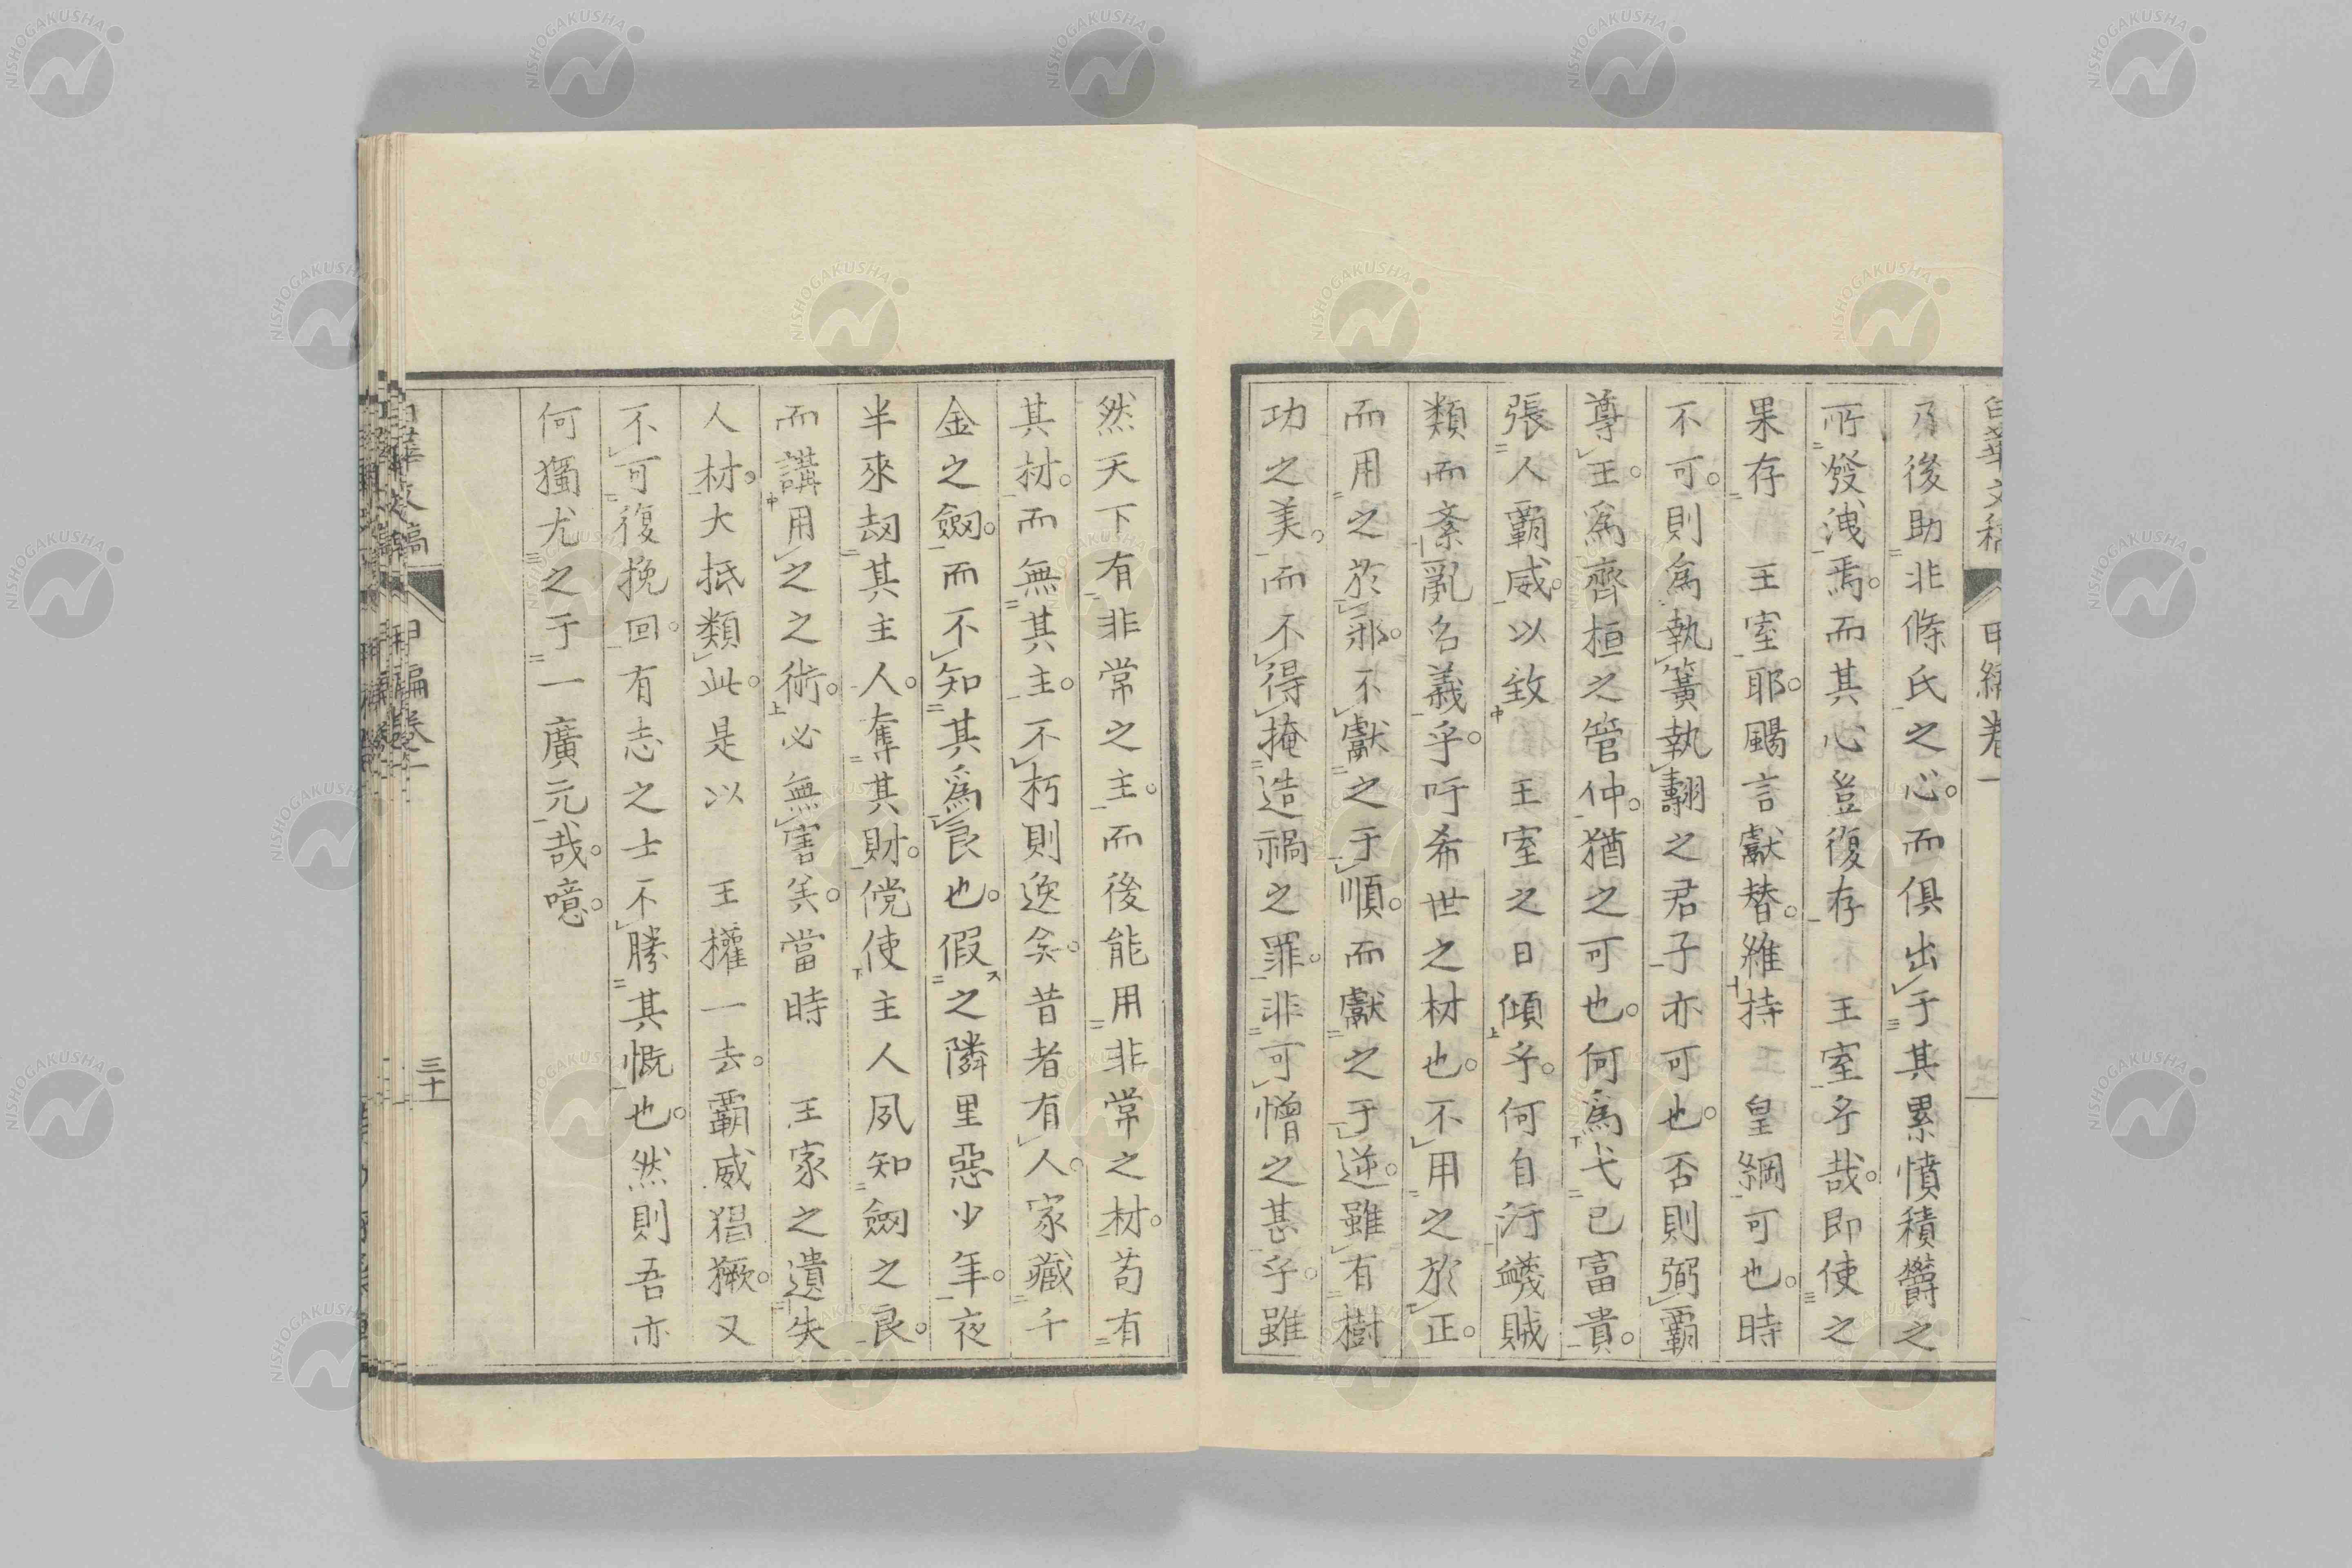 乃後助非條氏之心。而俱出于其累憤積欝之
所發洩焉。而其心豈復存 王室乎哉。即使之
果存 王室耶。颺言獻替。維持 皇綱可也。時
不可。則為執簧執翿之君子亦可也。否則弼霸
尊王。為齊桓之管仲。猶之可也。何為弋己富貴。
張人霸威。以致 王室之日傾乎。何自汙衊賊
類而紊亂名義乎。吁希世之材也。不用之於正。
而用之於邪。不獻之于順。而獻之于逆。雖有樹
功之美。而不得掩造禍之罪。非可憎之甚乎。雖
然天下有非常之主。而後能用非常之材。苟有
其材。而無其主。不朽則逸矣。昔者有人。家藏千
金之劔。而不知其為良也。假之隣里惡少年。夜
半來刧其主人。奪其財。儻使主人夙知劔之良。
而講用之之術。必無害矣。當時 王家之遺失
人材。大抵類此。是以 王權一去。霸威猖獗。又
不可復挽回。有志之士不勝其慨也。然則吾亦
何獨尤之于一廣元哉。噫。
三十
白華文稿 甲編卷一
NISHOGAKUSHA